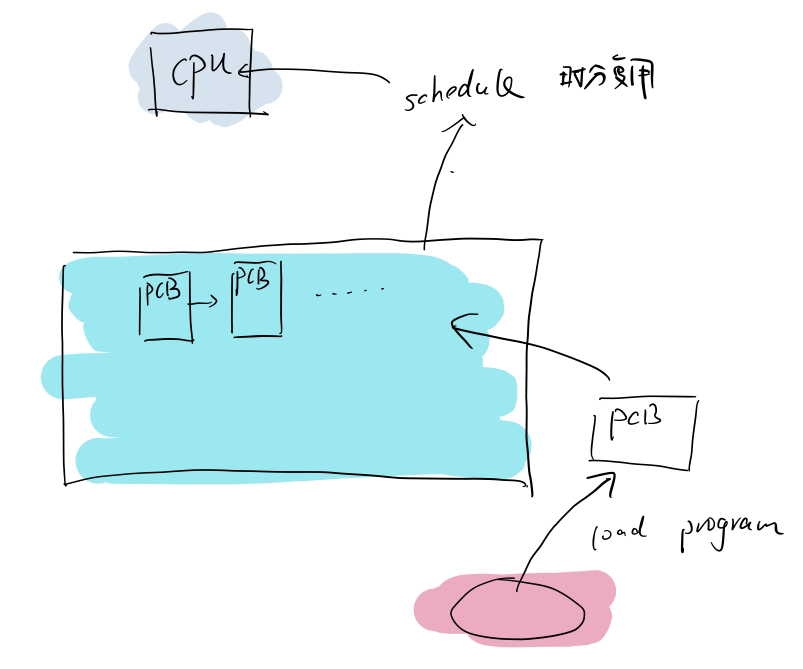 CPU
schedule 时分复用
PCB
PCB
......
PCB
load program